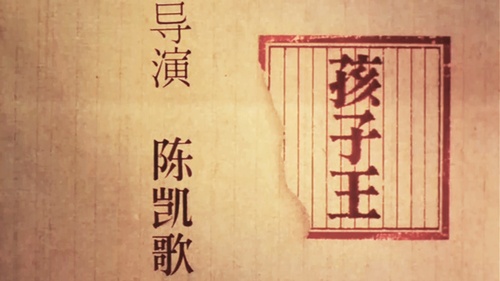 孩子王
导演 陈凯歌